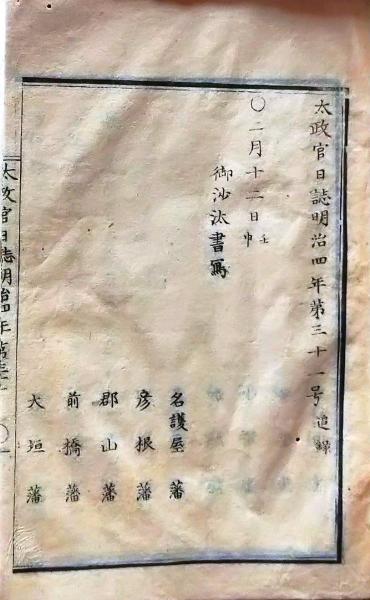 太政官日誌明治四年第三十一号 追録
〇二月十二日 壬申
御沙汰書写
名護屋藩
彦根藩
郡山藩
前橋藩
大垣藩
太政官日誌明治四年第三十一